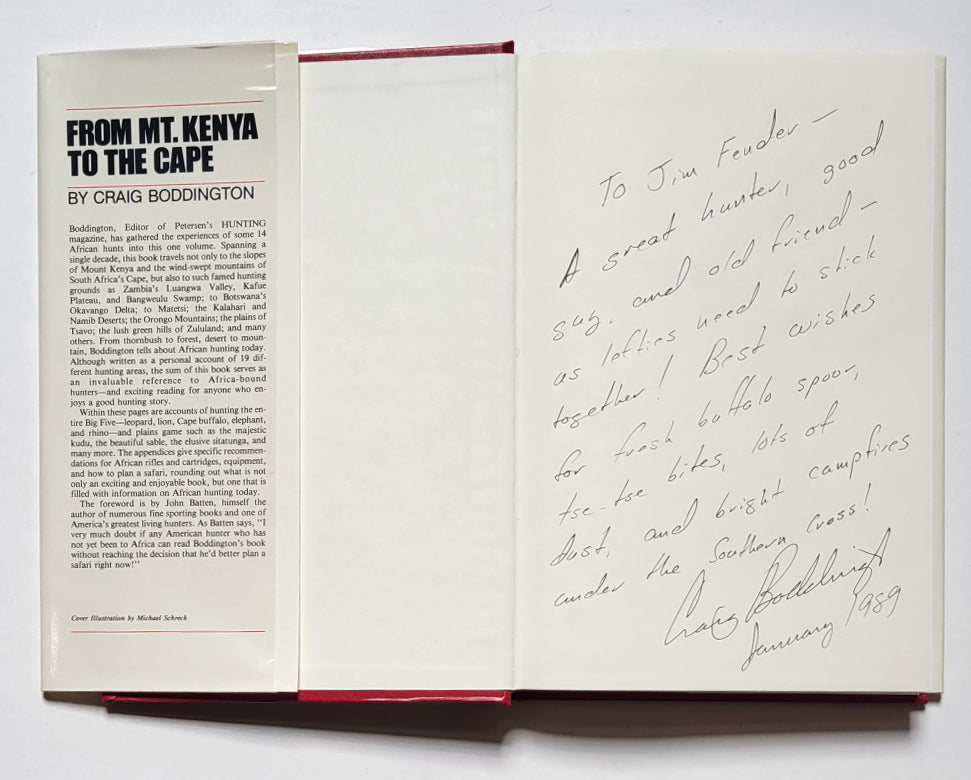 FROM MT. KENYA
TO THE CAPE
BY CRAIG BODDINGTON
Boddington, Editor of Petersen's HUNTING
magazine, has gathered the experiences of some 14
African hunts into this one volume. Spanning a
single decade, this book travels not only to the slopes
of Mount Kenya and the wind-swept mountains of
South Africa's Cape, but also to such famed hunting
grounds as Zambia's Luangwa Valley, Kafue
Plateau, and Bangweulu Swamp; to Botswana's
Okavango Delta; to Matetsi; the Kalahari and
Namib Deserts; the Orongo Mountains; the plains of
Tsavo; the lush green hills of Zululand; and many
others. From thornbush to forest, desert to moun-
tain, Boddington tells about African hunting today.
Although written as a personal account of 19 dif-
ferent hunting areas, the sum of this book serves as
an invaluable reference to Africa-bound
hunters—and exciting reading for anyone who en-
joys a good hunting story.
Within these pages are accounts of hunting the en-
tire Big Five—leopard, lion, Cape buffalo, elephant,
and rhino—and plains game such as the majestic
kudu, the beautiful sable, the elusive sitatunga, and
many more. The appendices give specific recommen-
dations for African rifles and cartridges, equipment,
and how to plan a safari, rounding out what is not
only an exciting and enjoyable book, but one that is
filled with information on African hunting today.
The foreword is by John Batten, himself the
author of numerous fine sporting books and one of
America's greatest living hunters. As Batten says, "I
very much doubt if any American hunter who has
not yet been to Africa can read Boddington's book
without reaching the decision that he'd better plan a
safari right now!"
Cover Illustration by Michael Schreck
To Jim Fender —
A great hunter, good
guy, and old friend —
as lefties need to stick
together! Best wishes
for fresh buffalo spoor,
tse-tse bites, lots of
dust, and bright campfires
under the Southern Cross!
Craig Boddington
January 1989